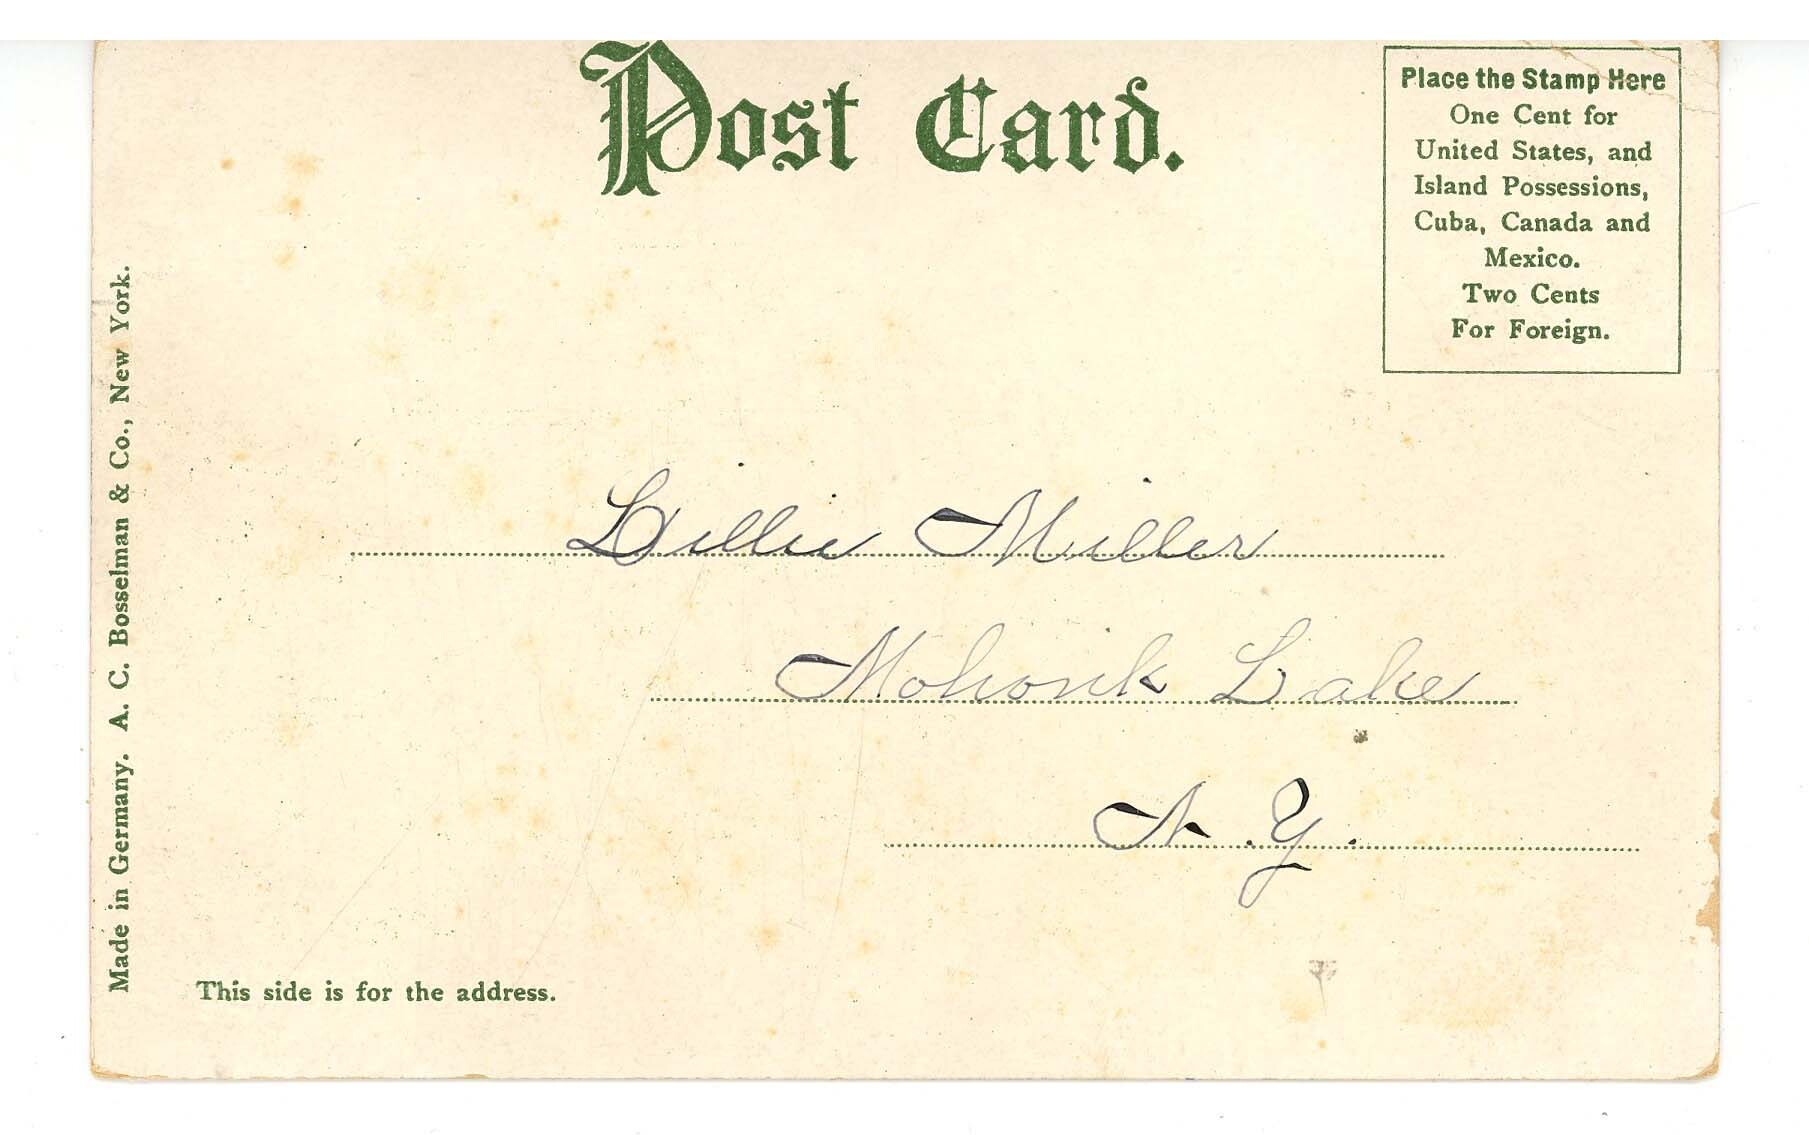 Post Card.
Place the Stamp Here
One Cent for
United States, and
Island Possessions,
Cuba, Canada and
Mexico.
Two Cents
For Foreign.
Made in Germany. A. C. Bosselman & Co., New York.
Lillie Miller
Mohonk Lake
N.Y.
This side is for the address.